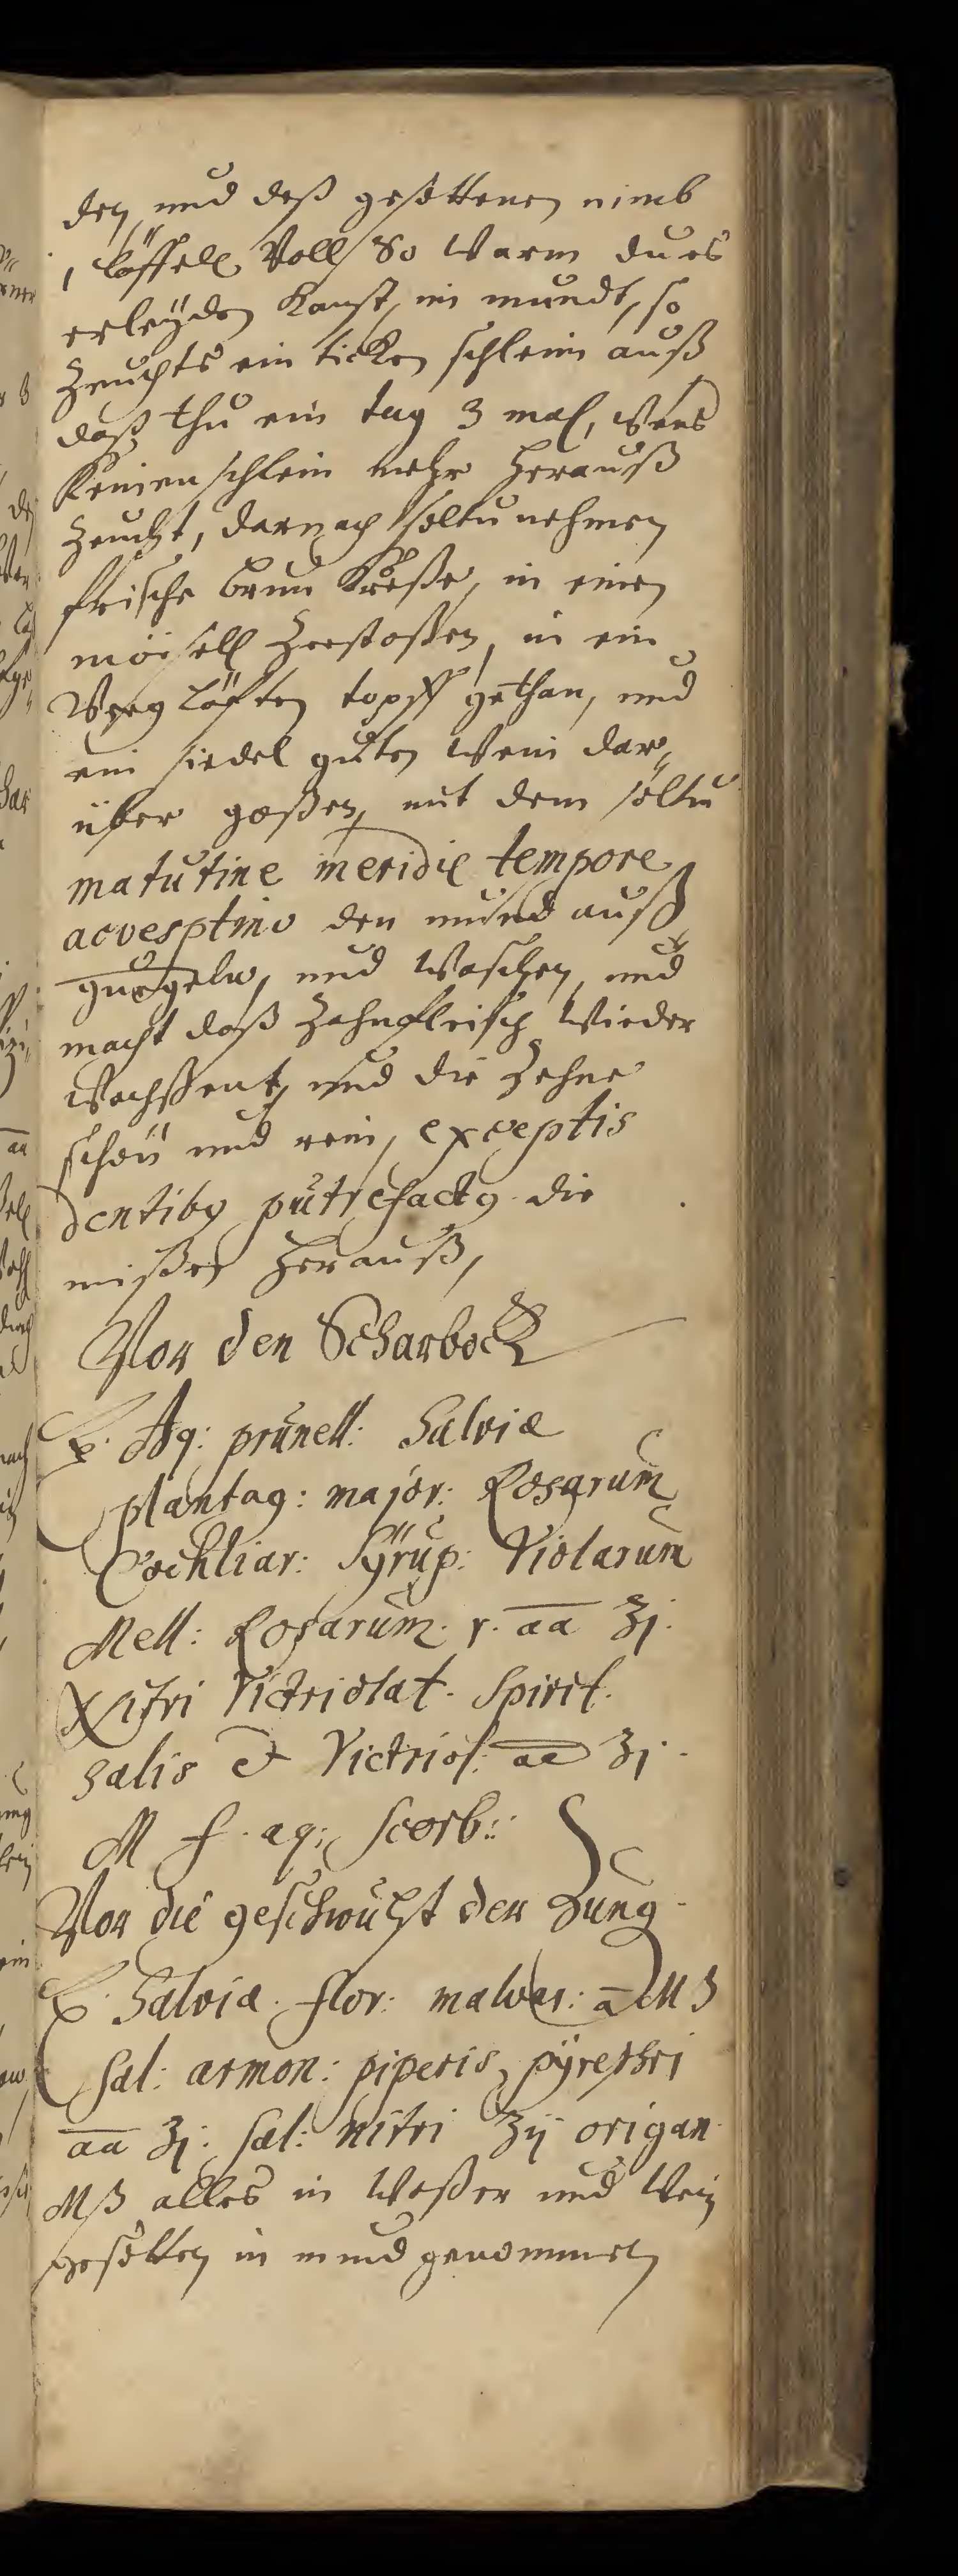 den, und deß gesottenen nimb
1 löffell Voll, So warm du es
erleyden kanst, in mundt, so
zeuchts ein dicken schleim auß
daß thu ein tag 3 mal, wens
keinen schleim mehr herauß
zeucht, darnach soltu nehmen
frische brun kreße, in einen
mörsell zerstoßen, in ein
topff gethan, und
ein siedel guten Wein dar„
über goßen, mit dem soltu
matutine meridie tempore
ac vesptino den mund auß
gurgeln, und waschen, und
macht daß zahnfleisch wieder
wachßent, und die zehne
schön und rein, exceptis
dentiby putrefacty die
mißen herauß,
Vor den Scharbock
Rx. Aq: prunell: Salviæ
plantag: major: Rosarum
Cochliar: Syrup: Violarum
Mell: Rosarum. r. aa ʒj.
Nitri Victriolat. Spirit.
Salis et Victriol: aa ʒj.
M f. aq: scorb::
Vor die geschwulst der Zung
Rx. Salviæ. flor: malvar: a Mß
Sal: armon: piperis, pyrethri
aa ʒj: Sal: nitri ʒij origan
Mß alles in Waßer und Wein
gesotten in mund genommen